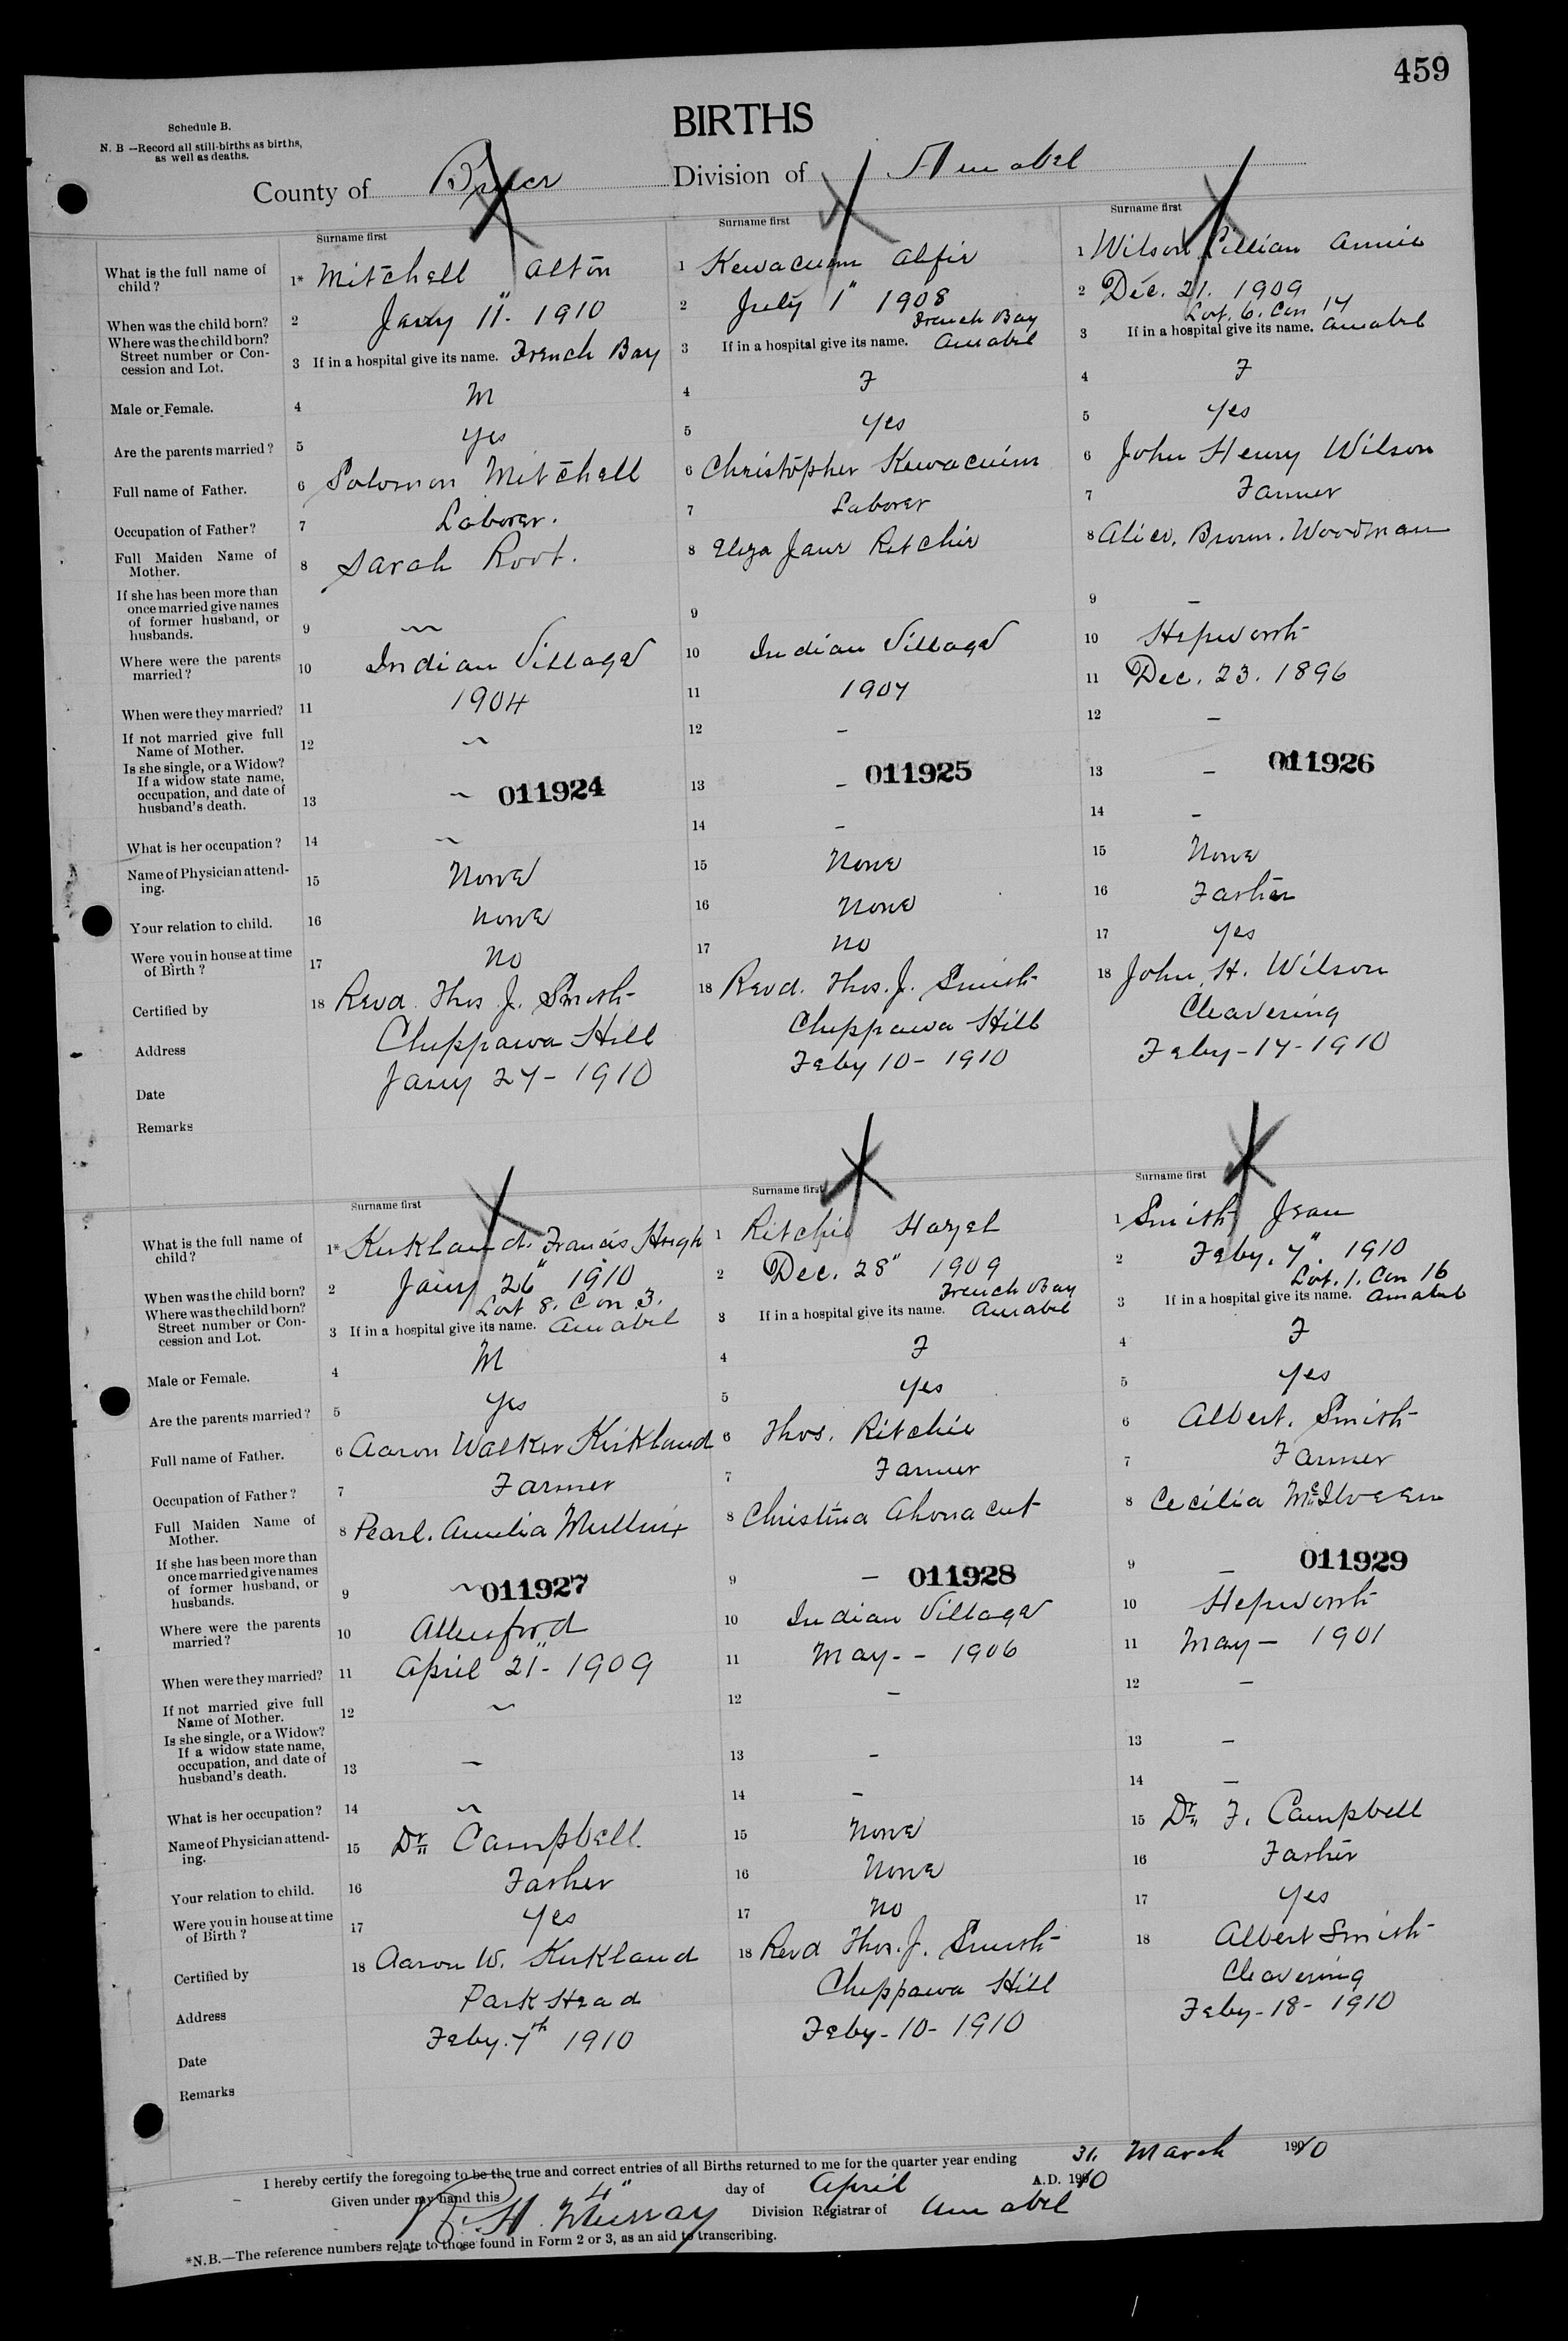 459
Schedule B.
BIRTHS
N. B —Record all still-births as births,
as well as deaths.
County of Bruce Division of Amabel
Surname first
What is the full name of child? 1* Mitchell Alton
When was the child born? 2 Jany 11" 1910
Where was the child born? Street number or Concession and Lot. 3 If in a hospital give its name. French Bay
Male or Female. 4 M
Are the parents married? 5 Yes
Full name of Father. 6 Solomon Mitchell
Occupation of Father? 7 Laborer.
Full Maiden Name of Mother. 8 Sarah Root.
If she has been more than once married give names of former husband, or husbands. 9 ~
Where were the parents married? 10 Indian Village
When were they married? 11 1904
If not married give full Name of Mother. 12 ~
Is she single, or a Widow? If a widow state name, occupation, and date of husband's death. 13 ~ 011924
What is her occupation? 14 ~
Name of Physician attending. 15 None
Your relation to child. 16 None
Were you in house at time of Birth? 17 No
Certified by 18 Revd Thos J. Smith
Address Chippawa Hill
Date Jany 27 - 1910
Remarks
Surname first
1 Kewacuim
2 July 1" 1908
French Bay
3 If in a hospital give its name. Amabel
4 F
5 Yes
6 Christopher Kewacuim
7 Laborer
8 Eliza Jane Ritchie
9
10 Indian Village
11 1907
12 -
13 - 011925
14 -
15 None
16 None
17 No
18 Revd. Thos. J. Smith
Chippawa Hill
Feby 10 - 1910
Surname first
1 Wilson Lillian Annie
2 Dec. 21. 1909
Lot. 6. Con 17
3 If in a hospital give its name. Amabel
4 F
5 Yes
6 John Henry Wilson
7 Farmer
8 Alice. Brown. Woodman
9 -
10 Hepworth
11 Dec. 23. 1896
12 -
13 - 011926
14 -
15 None
16 Father
17 Yes
18 John. H. Wilson
Clavering
Feby - 17 - 1910
Surname first
What is the full name of child? 1* Kirkland. Francis Hugh
When was the child born? 2 Jany 26" 1910
Lot 8. Con 3.
Where was the child born? Street number or Concession and Lot. 3 If in a hospital give its name. Amabel
Male or Female. 4 M
Are the parents married? 5 Yes
Full name of Father. 6 Aaron Walker Kirkland
Occupation of Father? 7 Farmer
Full Maiden Name of Mother. 8 Pearl. Amelia
If she has been more than once married give names of former husband, or husbands. 9 ~ 011927
Where were the parents married? 10 Allenford
When were they married? 11 April 21" - 1909
If not married give full Name of Mother. 12 ~
Is she single, or a Widow? If a widow state name, occupation, and date of husband's death. 13 -
What is her occupation? 14 ~
Name of Physician attending. 15 Dr Campbell.
Your relation to child. 16 Father
Were you in house at time of Birth? 17 Yes
Certified by 18 Aaron W. Kirkland
Address Park Head
Date Feby. 7th 1910
Remarks
Surname first
1 Ritchie Hazel
2 Dec. 28" 1909
French Bay
3 If in a hospital give its name. Amabel
4 F
5 Yes
6 Thos. Ritchie
7 Farmer
8 Christina
9 - 011928
10 Indian Village
11 May - - 1906
12 -
13 -
14 -
15 None
16 None
17 No
18 Revd Thos. J. Smith
Chippawa Hill
Feby - 10 - 1910
Surname first
1 Smith Jean
2 Feby. 7". 1910
Lot. 1. Con 16
3 If in a hospital give its name. Amabel
4 F
5 Yes
6 Albert. Smith
7 Farmer
8 Cecilia
9 - 011929
10 Hepworth
11 May - 1901
12 -
13 -
14 -
15 Dr F. Campbell
16 Father
17 Yes
18 Albert Smith
Clavering
Feby - 18 - 1910
I hereby certify the foregoing to be the true and correct entries of all Births returned to me for the quarter year ending 31. March 1910
Given under my hand this 4" day of April A.D. 1910
H. Murray Division Registrar of Amabel
*N.B.—The reference numbers relate to those found in Form 2 or 3, as an aid to transcribing.